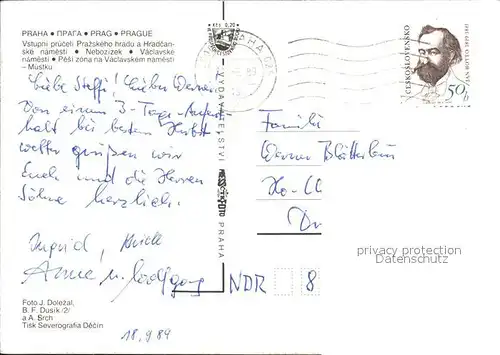 PRAHA • ПРАГА • PRAG • PRAGUE
Vstupní průčelí Pražského hradu a Hradčan-
ské náměstí • Nebozízek • Václavské
náměstí • Pěší zóna na Václavském náměstí
– Můstku
Liebe Steffi! Lieber Werner
Von einem 3-Tage-Aufent-
halt bei bestem Herbst
wetter grüßen wir
Euch und die Herren
Söhne herzlich.
Ingrid,
Anne u. Wolfgang
Foto J. Doležal,
B. F. Dusík /2/
a A. Srch
Tisk Severografia Děčín
18.9.89
Kčs 0,20
VYDAVATELSTVÍ
PRAHA
ČESKOSLOVENSKO
50 h
Familie
Werner
Dr
NDR 8
privacy protection
Datenschutz